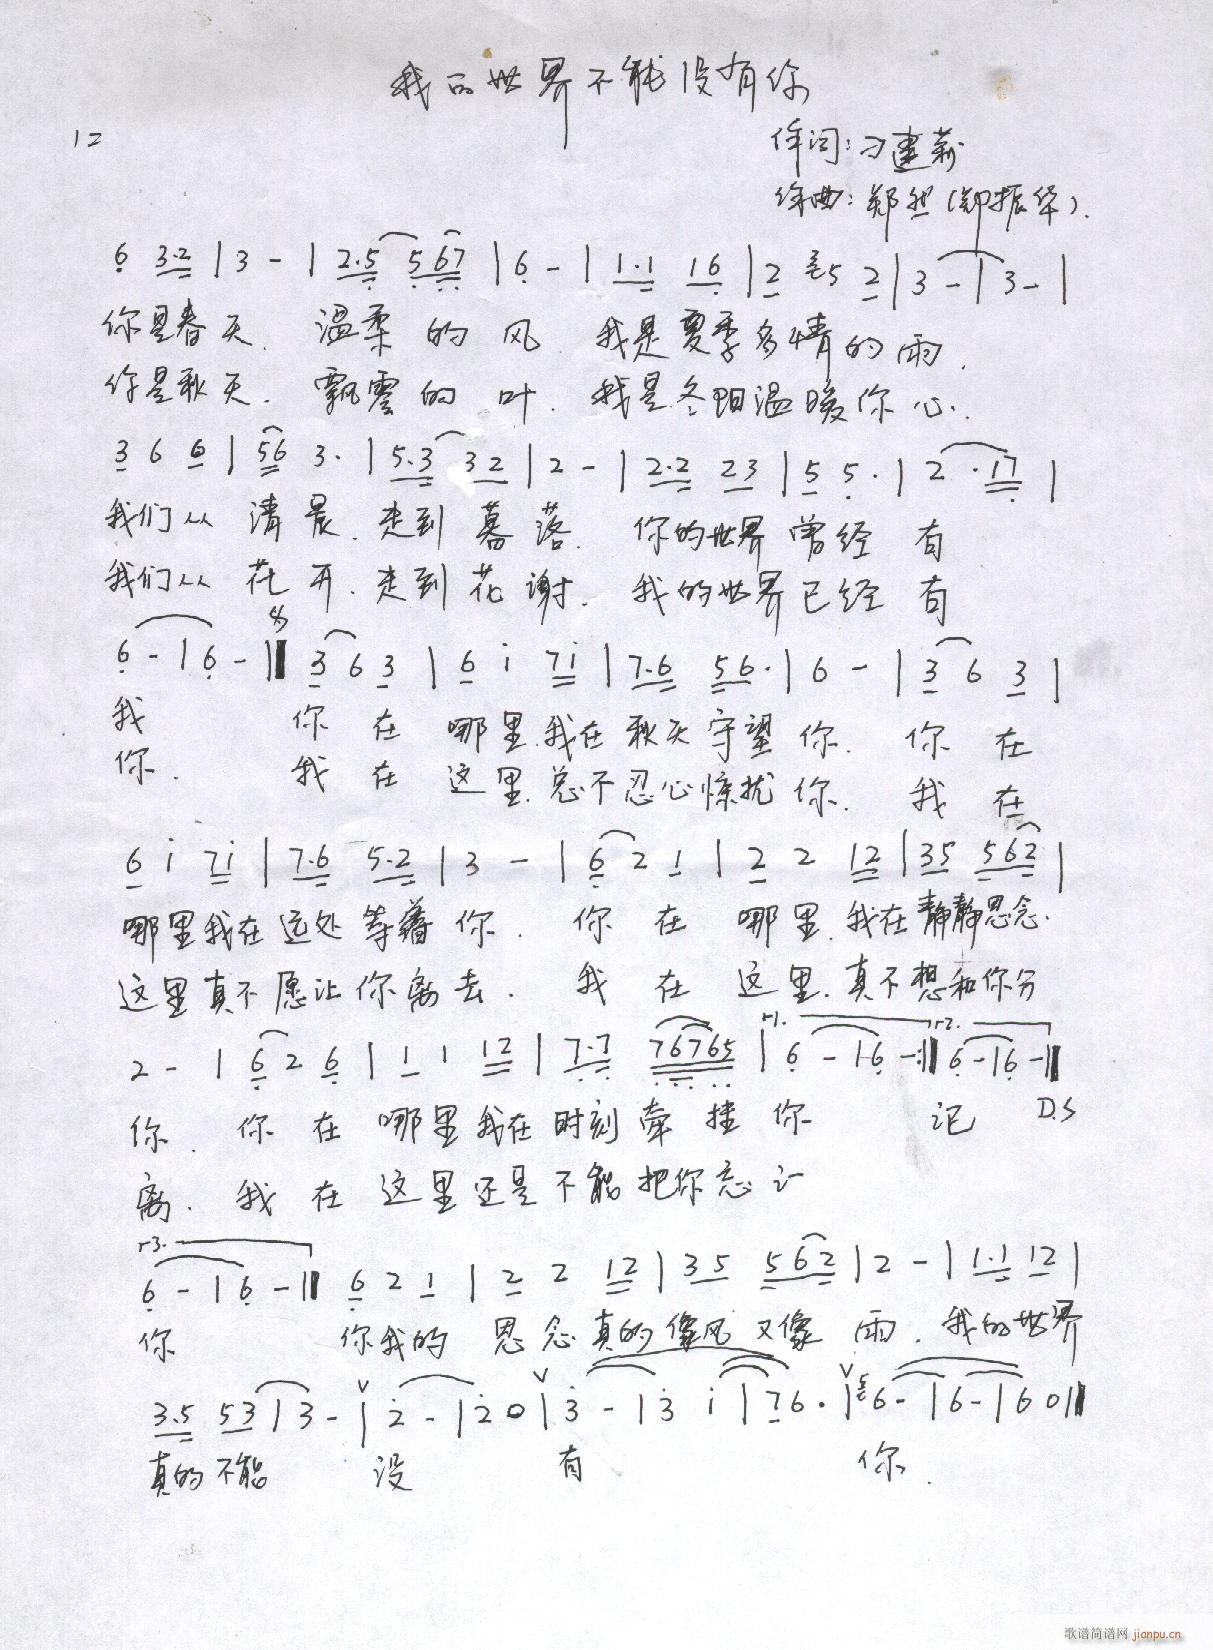 我的世界不能没有你
12
作词：刁建新
作曲：郑然（郑振华）.
6 3·2 | 3 - | 2·5 5 6 7 | 6 - | 1·1 1 6 | 2 5 2 | 3 - | 3 - |
你是春天 温柔的风 我是夏季多情的雨
你是秋天 飘零的叶 我是冬阳温暖你心
3 6 6 | 5 6 3· | 5·3 3 2 | 2 - | 2·2 2 3 | 5 5· | 2 · 1 7 |
我们从清晨 走到暮落 你的世界曾经有
我们从花开 走到花谢 我的世界已经有
6 - | 6 - || 3 6 3 | 6 i 7 i | 7·6 5 6· | 6 - | 3 6 3 |
我 你在哪里 我在秋天守望你 你在
你 我在这里 总不忍心惊扰你 我在
6 i 7 i | 7·6 5·2 | 3 - | 6 2 1 | 2 2 1 2 | 3 5 5 6 2 |
哪里我在远处等着你 你在哪里 我在静静思念
这里真不愿让你离去 我在这里 真不想和你分
2 - | 6 2 6 | 1 1 1 2 | 7·7 7 6 7 6 5 | r1. 6 - | 6 - :|| r2. 6 - | 6 - ||
你 你在哪里我在时刻牵挂你 记 D.S
离 我在这里还是不能把你忘
r3. 6 - | 6 - || 6 2 1 | 2 2 1 2 | 3 5 5 6 2 | 2 - | 1·1 1 2 |
你 你我的思念真的像风又像雨 我的世界
3·5 5 3 | 3 - | 2 - | 2 0 | 3 - | 3 i | 7 6· | 6 - | 6 - | 6 0 ||
真的不能 没 有 你
歌谱简谱网 jianpu.cn